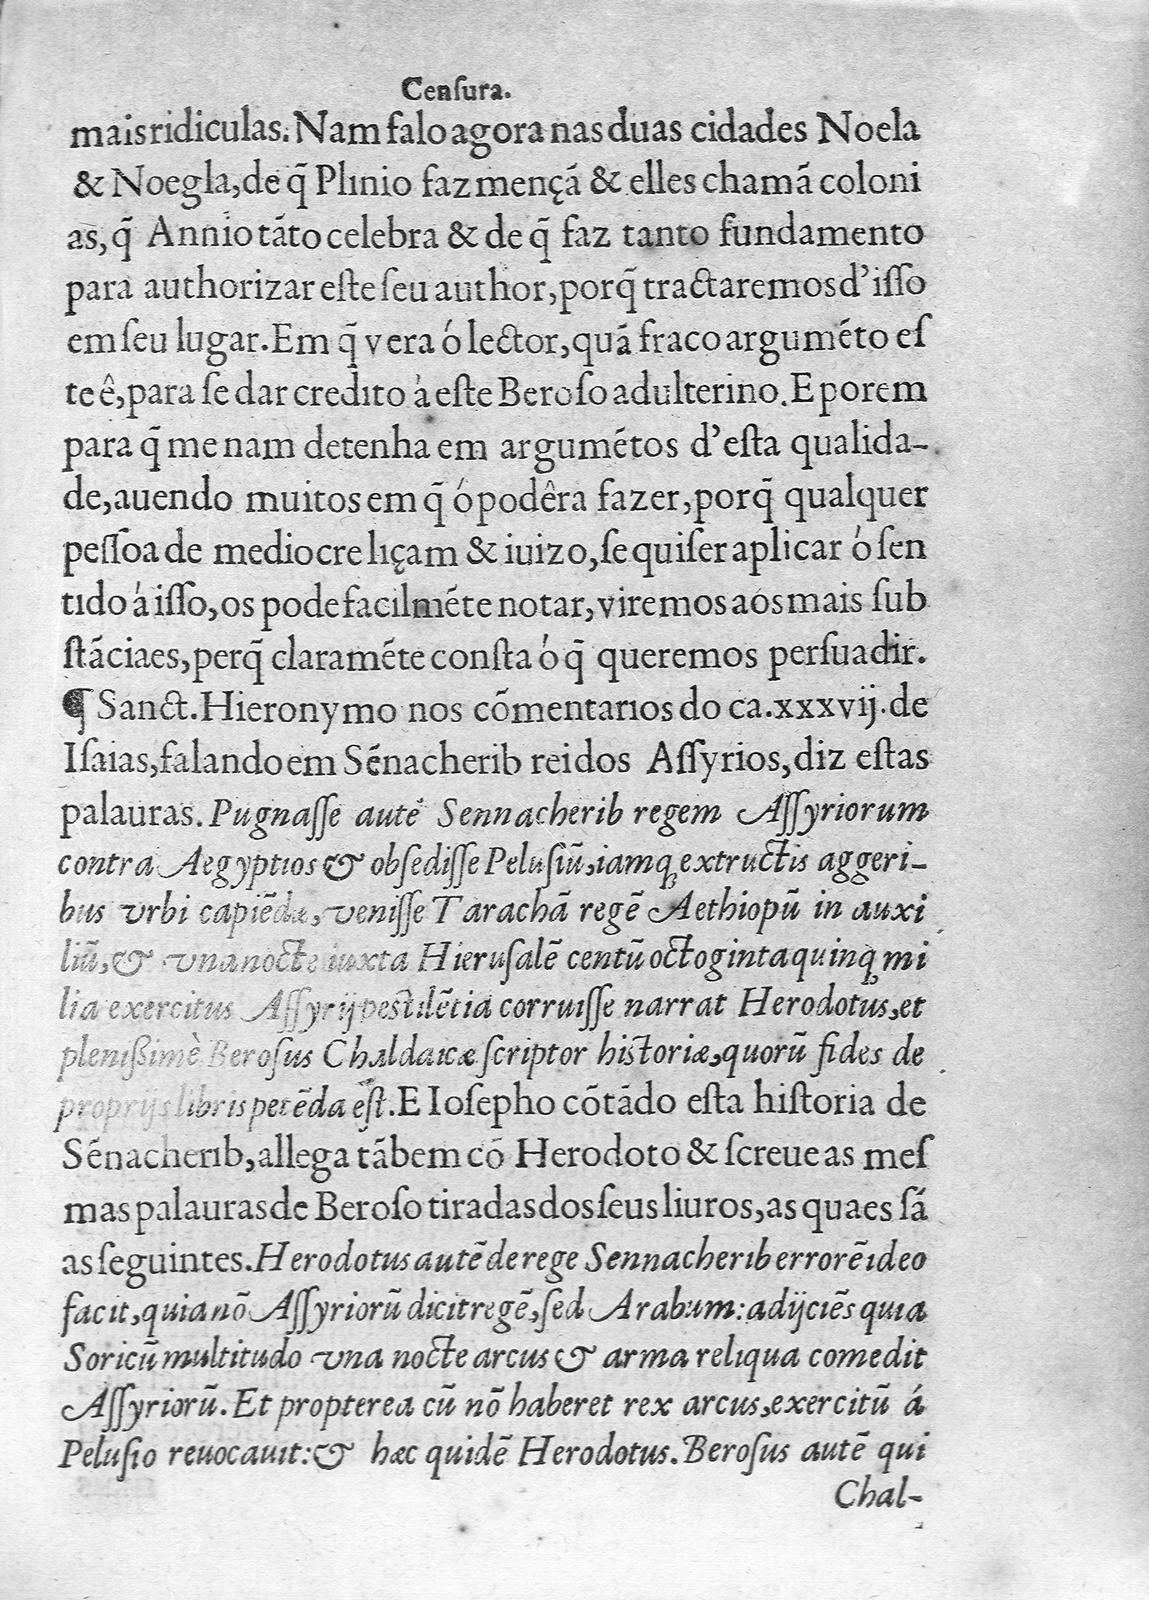 Cenſura.
mais ridiculas. Nam falo agora nas duas cidades Noela
& Noegla, de q̃ Plinio faz mençã & elles chamã coloni
as, q̃ Annio tãto celebra & de q̃ faz tanto fundamento
para authorizar eſte ſeu author, porq̃ tractaremos d'iſſo
em ſeu lugar. Em q̃ vera ó lector, quã fraco argumẽto eſ
te ê, para ſe dar credito á eſte Beroſo adulterino. E porem
para q̃ me nam detenha em argumẽtos d'eſta qualida-
de, auendo muitos em q̃ ó podêra fazer, porq̃ qualquer
peſſoa de mediocre liçam & iuizo, ſe quiſer aplicar ó ſen
tido á iſſo, os pode facilmẽte notar, viremos aos mais ſub
ſtãciaes, perq̃ claramẽte conſta ó q̃ queremos perſuadir.
¶ Sanct. Hieronymo nos cõmentarios do ca. xxxvij. de
Iſaias, falando em Sẽnacherib rei dos Aſſyrios, diz eſtas
palauras. Pugnaſſe autẽ Sennacherib regem Aſſyriorum
contra Aegyptios & obſediſſe Peluſiũ, iamq; extructis aggeri-
bus vrbi capiẽdæ, veniſſe Tarachã regẽ Aethiopũ in auxi
liũ, & vna nocte iuxta Hieruſalẽ centũ octoginta quinq; mi
lia exercitus Aſſyrij peſtilẽtia corruiſſe narrat Herodotus, et
pleniſsimè Beroſus Chaldaicæ ſcriptor hiſtoriæ, quorũ fides de
proprijs libris petẽda eſt. E Ioſepho cõtãdo eſta hiſtoria de
Sẽnacherib, allega tãbem cõ Herodoto & ſcreue as meſ
mas palauras de Beroſo tiradas dos ſeus liuros, as quaes ſã
as ſeguintes. Herodotus autẽ de rege Sennacherib errorẽ ideo
facit, quia nõ Aſſyriorũ dicit regẽ, ſed Arabum: adijciẽs quia
Soricũ multitudo vna nocte arcus & arma reliqua comedit
Aſſyriorũ. Et propterea cũ nõ haberet rex arcus, exercitũ á
Peluſio reuocauit: & hæc quidẽ Herodotus. Beroſus autẽ qui
Chal-